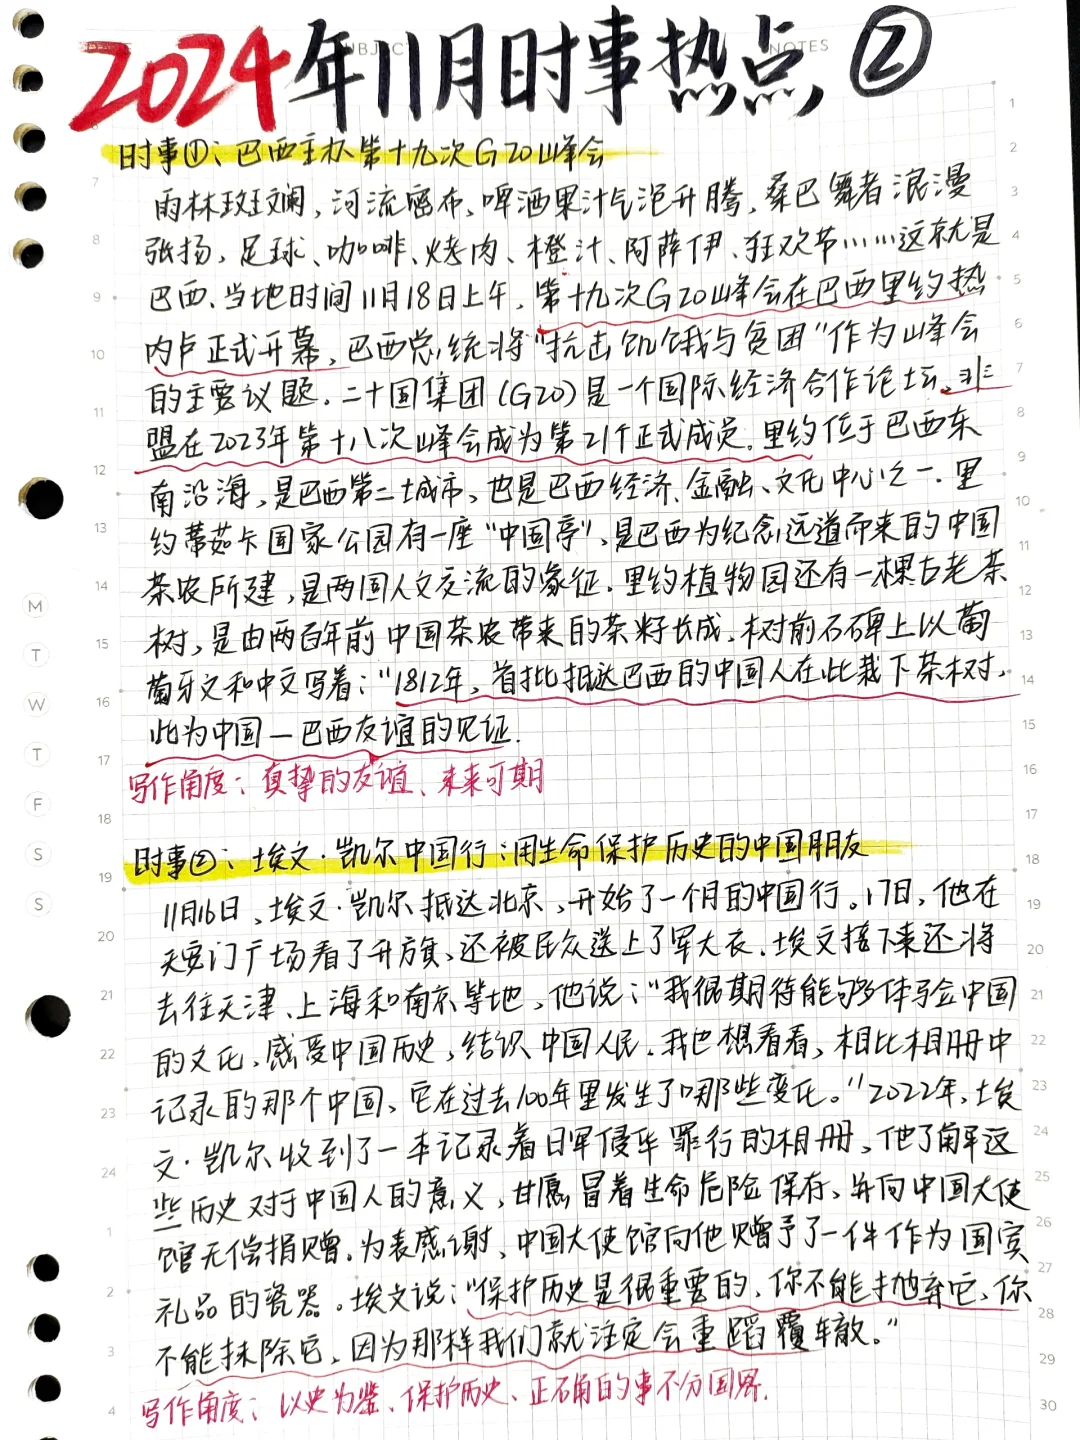 SUBJECT
NOTES
2024年11月时事热点②
时事①：巴西主办第十九次G20峰会
雨林斑斓，河流密布，啤酒果汁气泡升腾，桑巴舞者浪漫
张扬，足球、咖啡、烤肉、橙汁、阿萨伊、狂欢节……这就是
巴西、当地时间11月18日上午，第十九次G20峰会在巴西里约热
内卢正式开幕，巴西总统将"抗击饥饿与贫困"作为峰会
的主要议题．二十国集团（G20）是一个国际经济合作论坛。非
盟在2023年第十八次峰会成为第21个正式成员．里约位于巴西东
南沿海，是巴西第二大城市，也是巴西经济、金融、文化中心之一．里
约蒂茹卡国家公园有一座"中国亭"，是巴西为纪念远道而来的中国
茶农所建，是两国人文交流的象征．里约植物园还有一棵古老茶
树，是由两百年前中国茶农带来的茶籽长成．树前石碑上以葡
萄牙文和中文写着："1812年，首批抵达巴西的中国人在此栽下茶树，
此为中国—巴西友谊的见证．
写作角度：真挚的友谊、未来可期
时事②：埃文·凯尔中国行：用生命保护历史的中国朋友
11月16日，埃文·凯尔抵达北京，开始了一个月的中国行。17日，他在
天安门广场看了升旗，还被民众送上了军大衣．埃文接下来还将
去往天津、上海和南京等地，他说："我很期待能够多体验中国
的文化，感受中国历史，结识中国人民．我也想看看，相比相册中
记录的那个中国，它在过去100年里发生了哪些变化。"2022年，埃
文·凯尔收到了一本记录着日军侵华罪行的相册，他了解这
些历史对于中国人的意义，甘愿冒着生命危险保存，并向中国大使
馆无偿捐赠．为表感谢，中国大使馆向他赠予了一件作为国宾
礼品的瓷器。埃文说："保护历史是很重要的，你不能抛弃它，你
不能抹除它，因为那样我们就注定会重蹈覆辙。"
写作角度：以史为鉴、保护历史、正确的事不分国界．
M
T
W
T
F
S
S
6
7
8
9
10
11
12
13
14
15
16
17
18
19
20
21
22
23
24
1
2
3
4
1
2
3
4
5
6
7
8
9
10
11
12
13
14
15
16
17
18
19
20
21
22
23
24
25
26
27
28
29
30